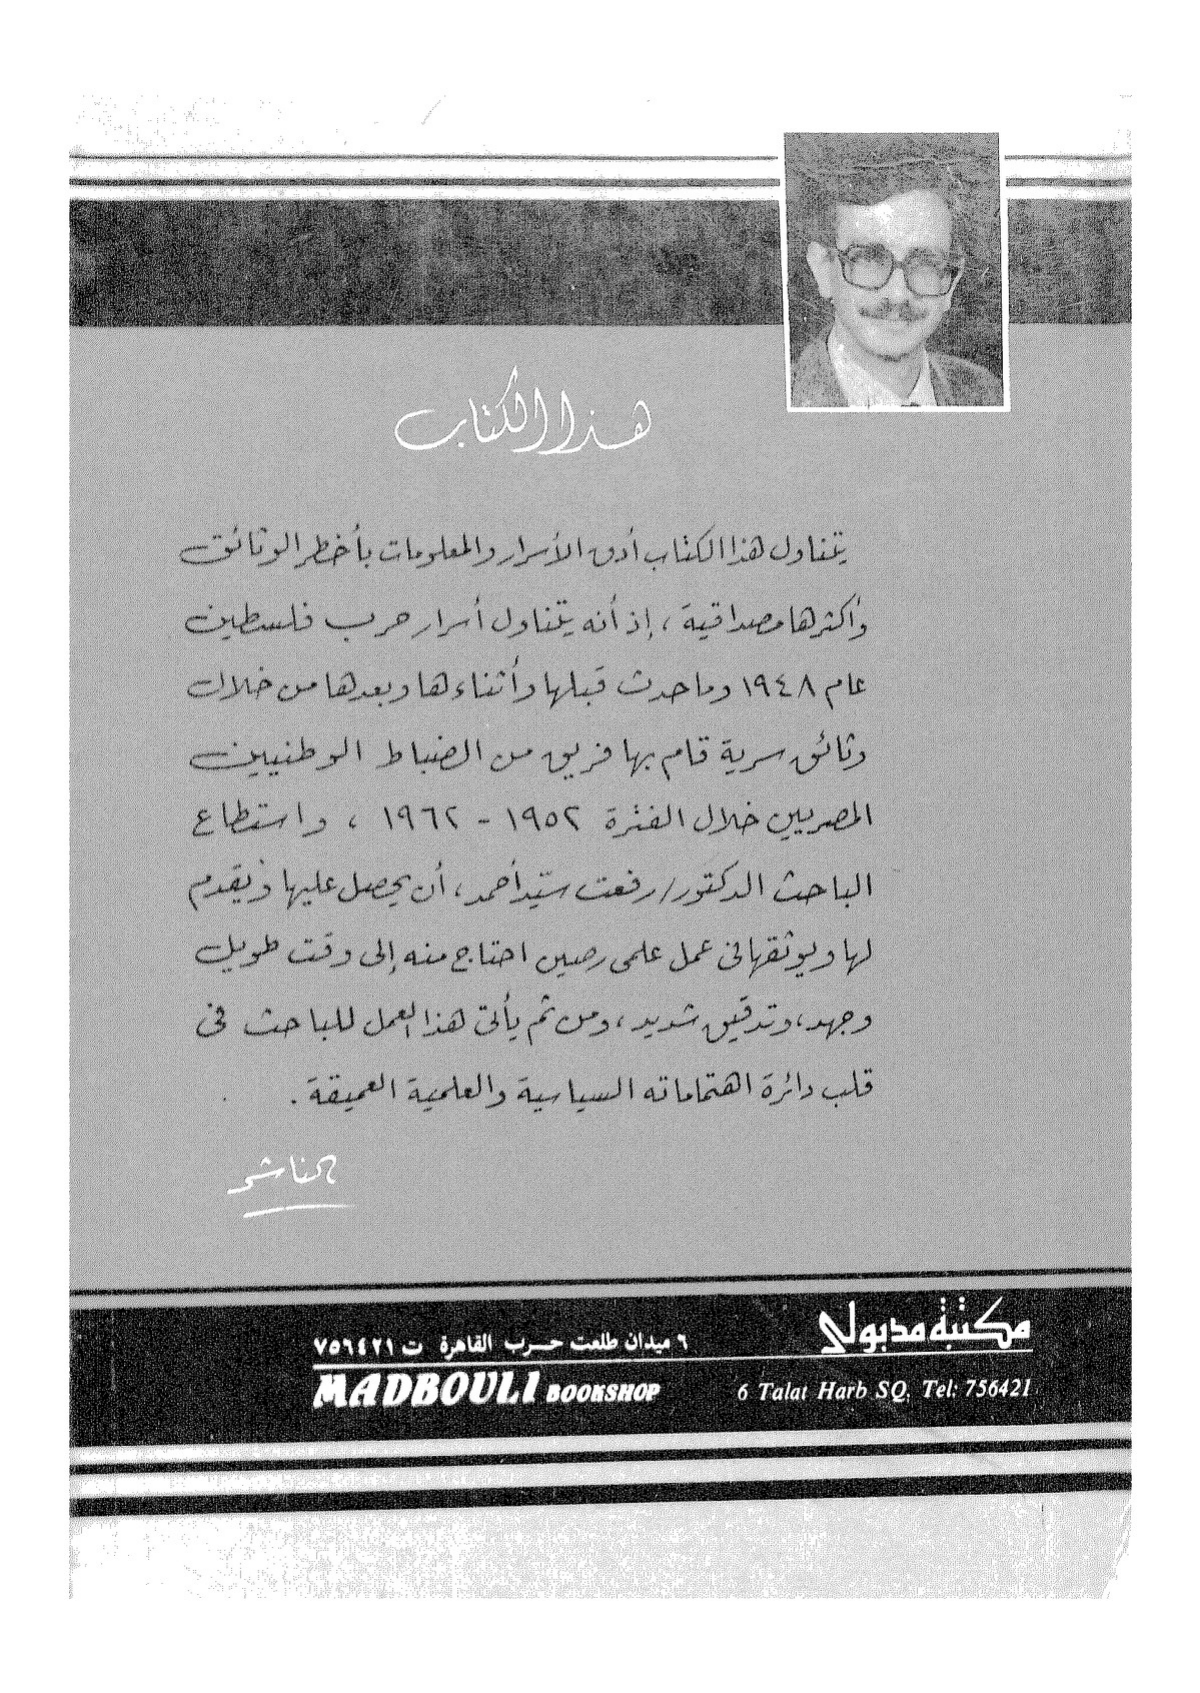 هذا الكتاب
يتناول هذا الكتاب أدق الأسرار والمعلومات بأخطر الوثائق
وأكثرها مصداقية ، إذ أنه يتناول أسرار حرب فلسطين
عام ١٩٤٨ وما حدث قبلها وأثناءها وبعدها من خلال
وثائق سرية قام بها فريق من الضباط الوطنيين
المصريين خلال الفترة ١٩٥٢ - ١٩٦٢ ، واستطاع
الباحث الدكتور/ رفعت سيد أحمد ، أن يحصل عليها ويقدم
لها ويوثقها فى عمل علمى رصين احتاج منه إلى وقت طويل
وجهد ، وتدقيق شديد ، ومن ثم يأتى هذا العمل للباحث فى
قلب دائرة اهتماماته السياسية والعلمية العميقة .
الناشر
مكتبة مدبولى
٦ ميدان طلعت حرب القاهرة ت ٧٥٦٤٢١
MADBOULI BOOKSHOP
6 Talat Harb SQ. Tel: 756421